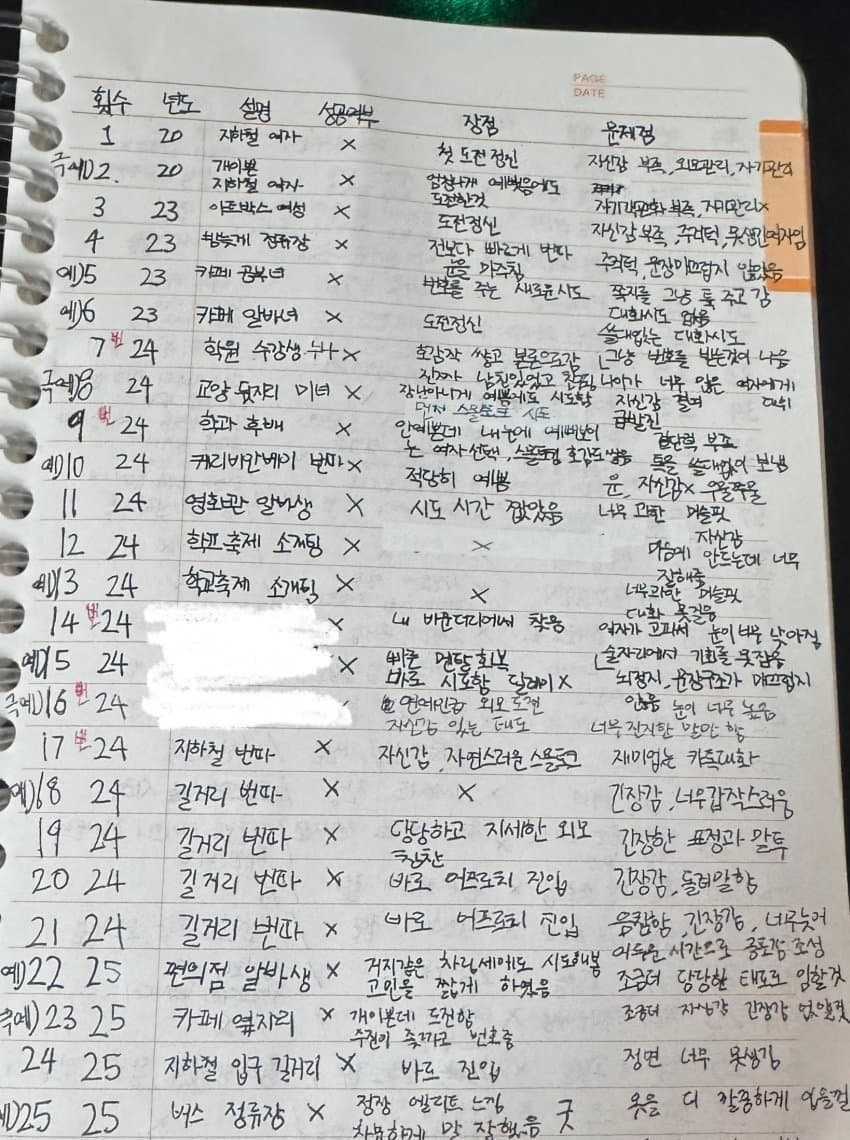 PAGE
DATE
횟수 년도 설명 성공여부 장점 문제점
1 20 지하철 여자 × 첫 도전 정신 자신감 부족, 외모관리, 자기관리
극예)2. 20 개이쁜 지하철 여자 × 엄청나게 예뻤음에도 도전한것
3 23 아트박스 여성 × 도전정신 자기객관화 부족, 자기관리×
4 23 정류장 × 전보다 빠르게 번따 자신감 부족, 주저턱, 못생긴여자임
예)5 23 카페 공부녀 × 눈을 마주침 번호를 주는 새로운시도 주저턱, 문장미끄럽지 않았음
쪽지를 그냥 툭 주고 감
예)6 23 카페 알바녀 × 도전정신 대화시도 없음
쓸데없는 대화시도
7 번 24 학원 수강생 누나 × 호감작 쌓고 본론으로감 그냥 번호를 받는것이 나음
극예)8 24 교양 뒷자리 미녀 × 장난아니게 예쁨에도 시도함 나이가 너무 많은 여자에게
자신감 결여
9 번 24 학과 후배 × 먼저 스몰토크 시도 급발진
안예쁜데 내눈에 예뻐보이는 여자선택, 스몰토킹 호감도쌓음 결단력 부족
톡을 쓸데없이 보냄
예)10 24 캐리비안베이 번따 × 적당히 예쁨 운, 자신감× 우물쭈물
11 24 영화관 알바생 × 시도 시간 짧았음 너무 과한 머슬핏
자신감
12 24 학교축제 소개팅 × × 마음에 안드는데 너무 잘해줌
예)13 24 학교축제 소개팅 × × 너무과한 머슬핏
대화 못걸음
14 번 24 × 내 바운더리에서 찾음 여자가 고파서 눈이 너무 낮아짐
예)15 24 × 빠른 멘탈회복 술자리에서 기회를 못잡음
바로 시도함 딜레이× 뇌정지, 문장구조가 매끄럽지 않음
극예)16 번 24 연예인급 외모 도전 눈이 너무 높음
자신감 있는 태도 너무진지한 말만 함
17 번 24 지하철 번따 × 자신감, 자연스러운 스몰토크 재미없는 카톡대화
예)18 24 길거리 번따 × × 긴장감, 너무갑작스러움
19 24 길거리 번따 × 당당하고 자세한 외모 칭찬 긴장한 표정과 말투
20 24 길거리 번따 × 바로 어프로치 진입 긴장감, 돌려말함
21 24 길거리 번따 × 바로 어프로치 진입 음침함, 긴장감, 너무늦어
어두운 시간으로 공포감 조성
예)22 25 편의점 알바생 × 거지같은 차림새에도 시도해봄 조금더 당당한 태도로 임할것
고민을 짧게 하였음
극예)23 25 카페 옆자리 × 개이쁜데 도전함 조금더 자신감 긴장감 없앨것
주변이 좆까고 번호줌
24 25 지하철 입구 길거리 × 바로 진입 정면 너무 못생김
예)25 25 버스 정류장 × 정장 엘리트 느낌 굿 옷을 더 깔끔하게 입을걸
차분하게 말 잘했음